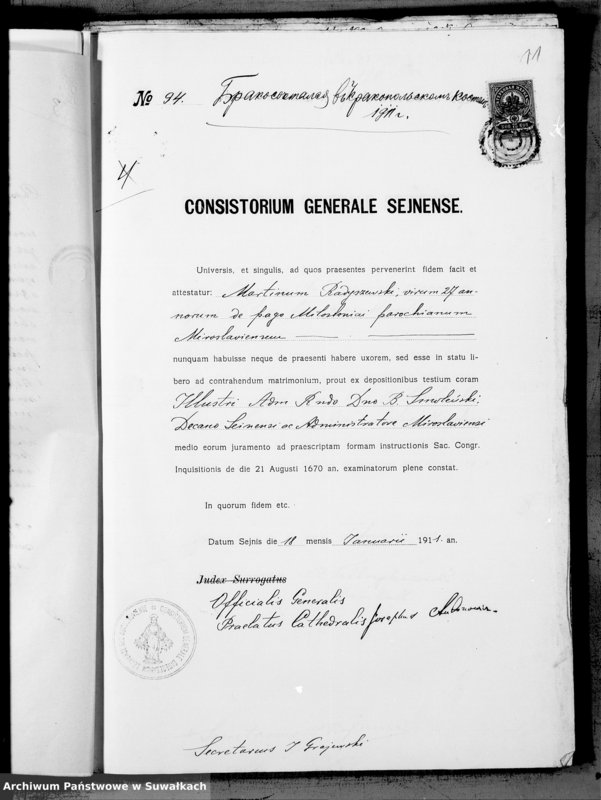 11
№ 94. Бракосочетался въ Кракопольскомъ Косте
1911 г.
4
CONSISTORIUM GENERALE SEJNENSE.
Universis, et singulis, ad quos praesentes pervenerint fidem facit et
attestatur: Martinum Radyszewski, virum 27 an-
norum de pago Milosłonici parochianum
Mirosłaviensem
nunquam habuisse neque de praesenti habere uxorem, sed esse in statu li-
bero ad contrahendum matrimonium, prout ex depositionibus testium coram
Illustri Adm Rndo Dno B. Smoleński,
Decano Seinensi ac Administratore Mirosłaviensi
medio eorum juramento ad praescriptam formam instructionis Sac. Congr.
Inquisitionis de die 21 Augusti 1670 an. examinatorum plene constat.
In quorum fidem etc.
Datum Sejnis die 18 mensis Januarii 1911. an.
Judex Surrogatus
Officialis Generalis
Praelatus Cathedralis Josephus
Secretarius J Grajewski
Archiwum Państwowe w Suwałkach